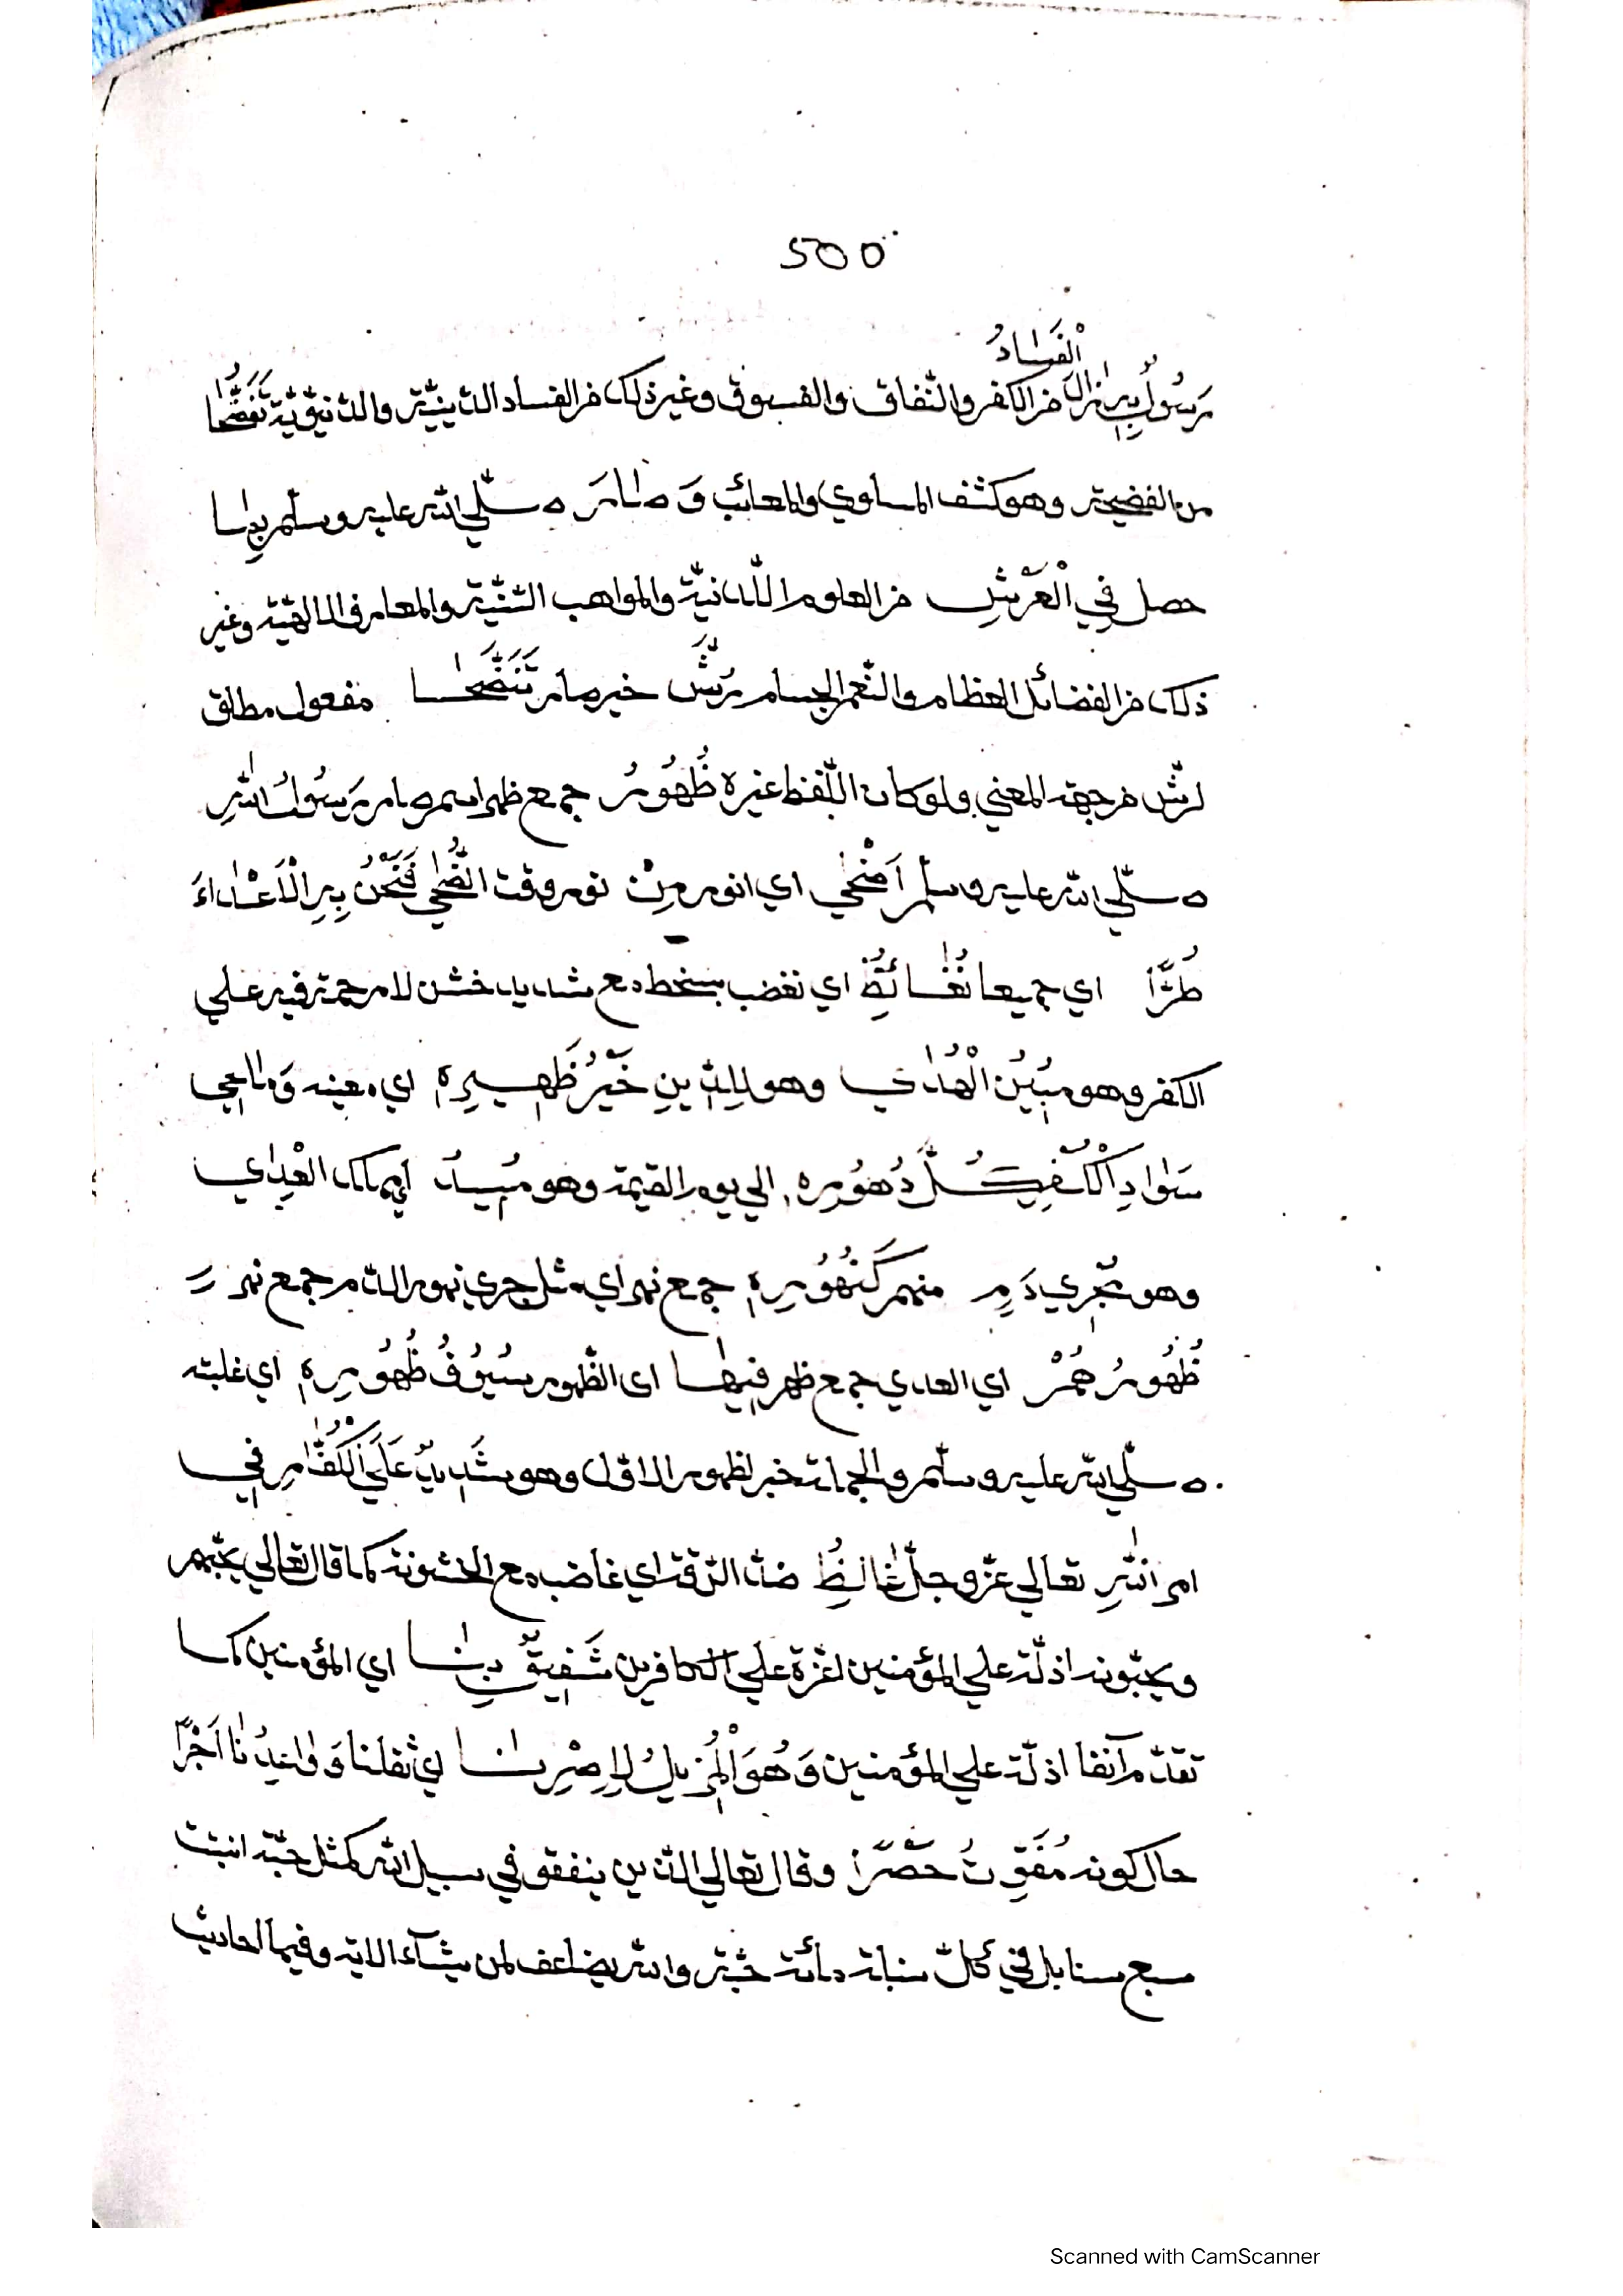 500
الْفَسَادُ
رَسُولٌ بِهِ زَالَ من الكفر والنّفاق والفسوق وغير ذلك من الفساد الدّينيّة والدّنيويّة تَفَضُّحًا
من الفضيحة وهو كشف المساوي والمعائب وَصَارَ صلّي الله عليه وسلّم بِهَا
حصل فِي الْعَرْشِ من العلوم اللّدنيّة والمواهب السّنيّة والمعارف الالهيّة وغير
ذلك من الفضائل العظام والنّعم الجسام رُشَّ خبر صار تَنَضُّحَا مفعول مطلق
لرشّ من جهة المعني ولو كان اللّفظ غيره ظُهُورُ جمع ظهر اسم صار رَسُولِ اللهِ
صلّي الله عليه وسلّم اَضْحٰي اي انور مِنْ نور وقت الضُّحٰي فَنَحْنُ بِهِ الْاَعْدَاءَ
طُرًّا اي جميعا نُغَائِظُ اي نغضب بسخط مع شديد خشن لا مرحمة فيه علي
الكفر وهو مُبِيْنُ الْهُدٰي وهو لِلدِّينِ خَيْرُ ظَهِيرِهِ اي معينه وَمَاحِي
سَوَادِ الْكُفْرِ كُلَّ دُهُورِهِ الي يوم القيمة وهو مُبِيدُ اي مهلك الْعِدٰي
وهو مُجْرِي دَمٍ منهم كَنُهُورِهِ جمع نهر اي مثل جري نهور الدّم جمع نهر
ظُهُورُهُمْ اي العدي جمع ظهر فِيهَا اي الظّهور سُيُوفُ ظُهُورِهِ اي غلبته
صلّي الله عليه وسلّم والجملة خبر لظهور الاوّل وهو شَدِيدٌ عَلَي الْكُفَّارِ فِي
امر اللهِ تعالي عزّ وجلّ غَائِظُ ضدّ الرّقة اي غاضب مع الخشونة كما قال تعالي يحبّهم
ويحبّونه اذلّة علي المؤمنين اعزّة علي الكافرين شَفِيقٌ بِنَا اي المؤمنين كما
تقدّم آنفا اذلّة علي المؤمنين وَهُوَ الْمُزِيلُ لِاِصْرِنَا اي ثقلنا وَوَاعِدُنَا اَجْرًا
حال كونه مُفَوِّتُ حَصْرًا وقال تعالي الذين ينفقو في سبيل الله كمثل حبّة انبتت
سبع سنابل في كلّ سنبلة مائة حبّة والله يضاعف لمن يشآء الاية وفيما احاديث
Scanned with CamScanner